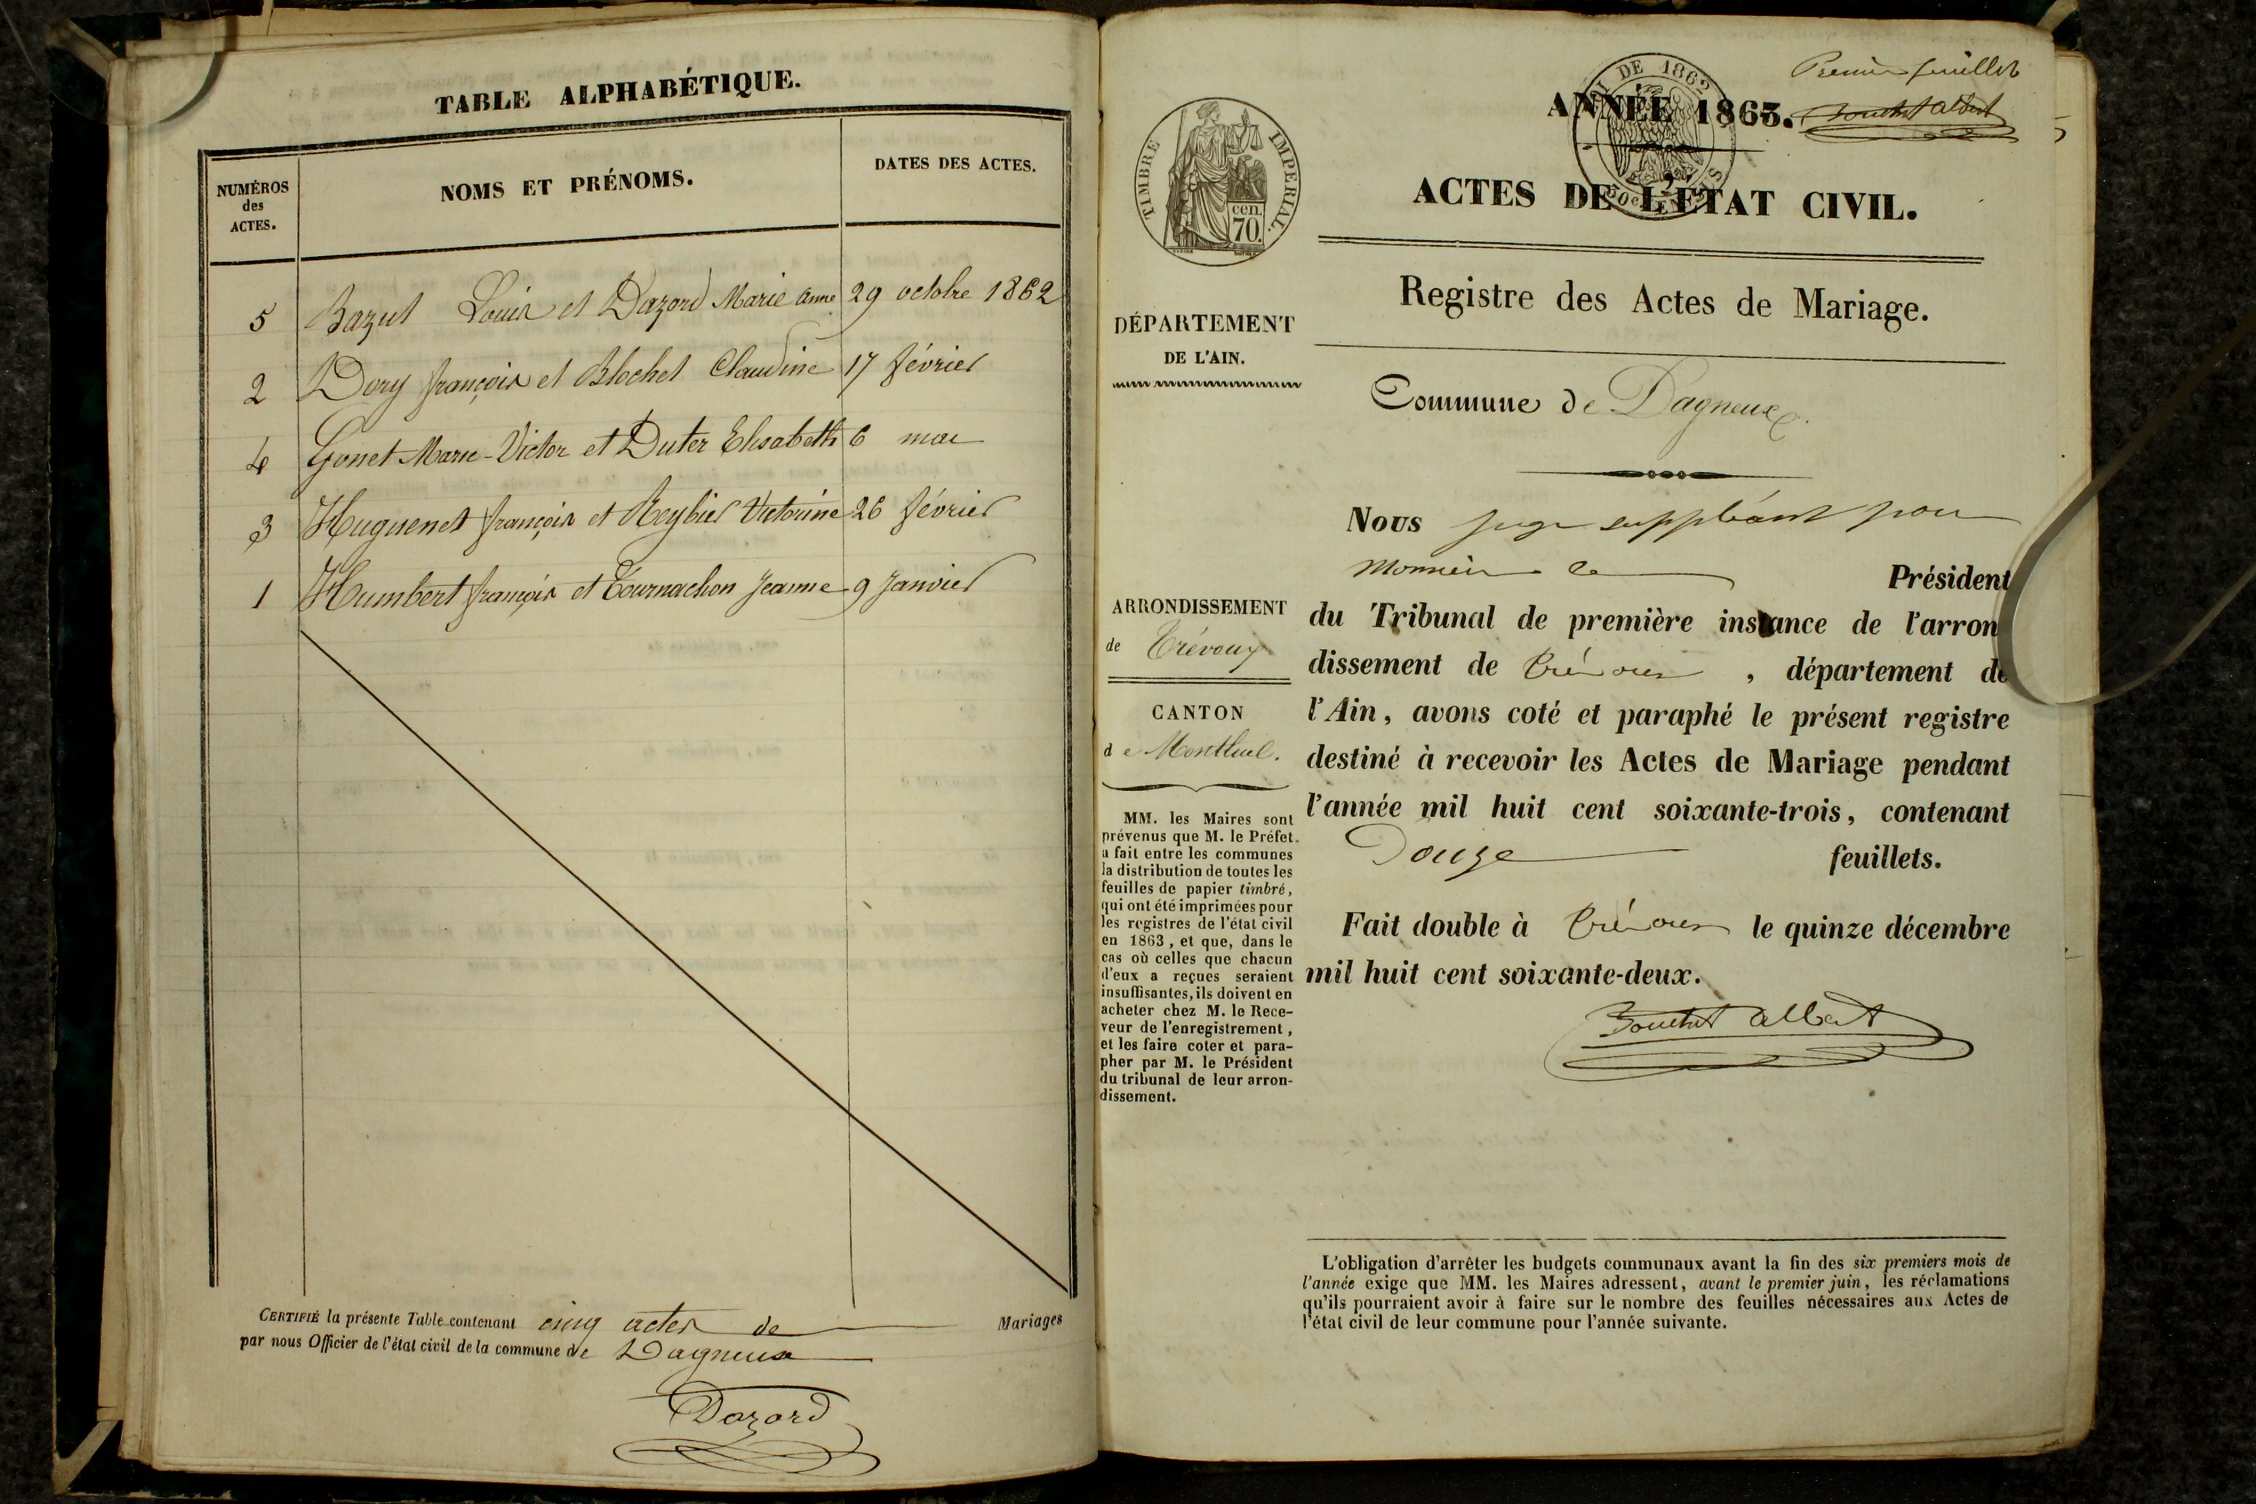 TABLE ALPHABÉTIQUE.
NUMÉROS
des
ACTES.
NOMS ET PRÉNOMS.
DATES DES ACTES.
5 Bazut Louis et Dazord Marie Anne 29 octobre 1862
2 Dory françois et Blochet Claudine 17 février
4 Gonet Marie-Victor et Duter Elisabeth 6 mai
3 Huguenet françois et Reybier Victorine 26 février
1 Humbert françois et Tournachon Jeanne 9 Janvier
CERTIFIÉ la présente Table contenant cinq actes de Mariages
par nous Officier de l'état civil de la commune de Dagneux
Dazord
Premier feuillet
DE 1862
ANNÉE 1863.
Bouchet Albert
TIMBRE IMPERIAL.
cen.
70.
50c
ACTES DE L'ÉTAT CIVIL.
Registre des Actes de Mariage.
DÉPARTEMENT
DE L'AIN.
Commune de Dagneux.
Nous juge suppléant pour
Monsieur le Président
ARRONDISSEMENT
de Trévoux
du Tribunal de première instance de l'arron
dissement de Trévoux , département de
CANTON
de Montluel.
l'Ain, avons coté et paraphé le présent registre
destiné à recevoir les Actes de Mariage pendant
l'année mil huit cent soixante-trois, contenant
Douze feuillets.
Fait double à Trévoux le quinze décembre
mil huit cent soixante-deux.
Bouchet Albert
MM. les Maires sont
prévenus que M. le Préfet
a fait entre les communes
la distribution de toutes les
feuilles de papier timbré,
qui ont été imprimées pour
les registres de l'état civil
en 1863, et que, dans le
cas où celles que chacun
d'eux a reçues seraient
insuffisantes, ils doivent en
acheter chez M. le Rece-
veur de l'enregistrement,
et les faire coter et para-
pher par M. le Président
du tribunal de leur arron-
dissement.
L'obligation d'arrêter les budgets communaux avant la fin des six premiers mois de
l'année exige que MM. les Maires adressent, avant le premier juin, les réclamations
qu'ils pourraient avoir à faire sur le nombre des feuilles nécessaires aux Actes de
l'état civil de leur commune pour l'année suivante.